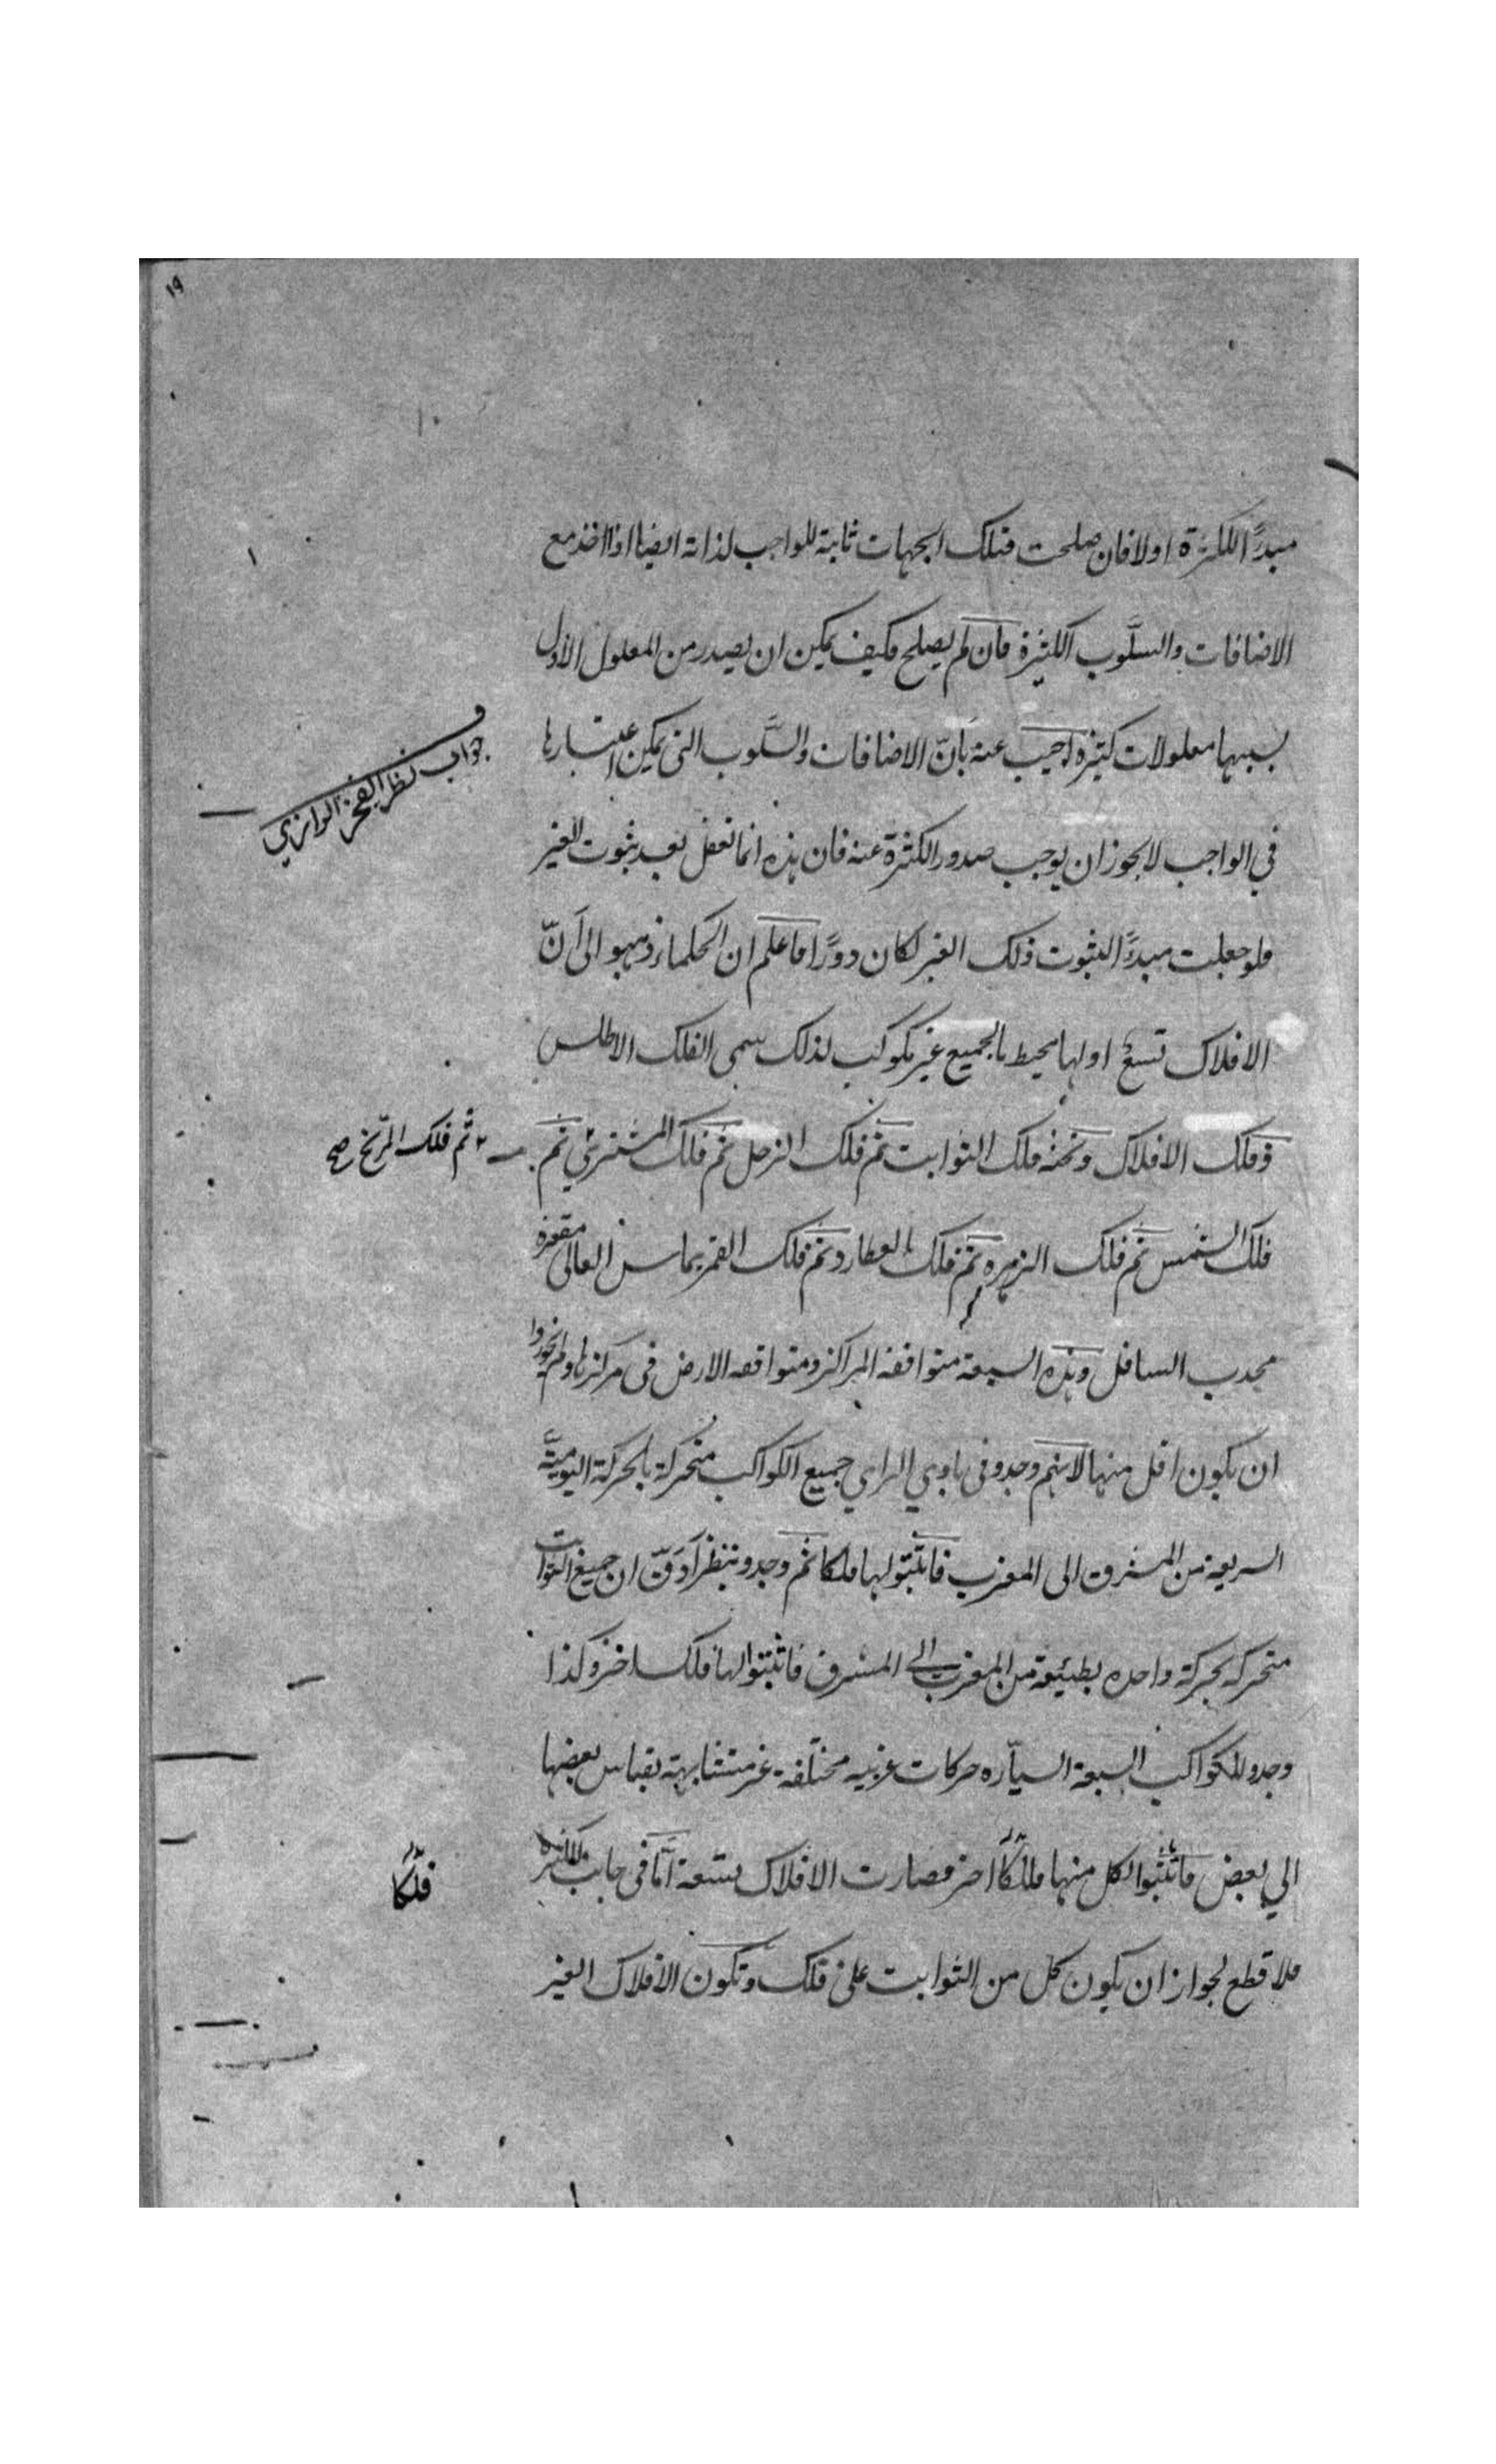 ١٩
مبدءًا للكثرة اولا فان صلحت فتلك الجهات ثابتة للواجب لذاته ايضا اذا اخذ مع
الاضافات والسلوب الكثيرة فان لم يصلح فكيف يمكن ان يصدر من المعلول الاول
بسببها معلولات كثيرة اجيب عنه بانّ الاضافات والسَّلوب التى يمكن اعتبارها
جواب نظر الفخر الرازي
في الواجب لا يجوز ان يوجب صدور الكثرة عنه فان هذه انما تعقل بعد ثبوت الغير
فلو جعلت مبدءًا لثبوت ذلك الغير لكان دورًا فاعلم ان الحكماء ذهبو الى اَنّ
الافلاك تسع اولها محيط بالجميع غير مكوكب لذلك سمى الفلك الاطلس
وفلك الافلاك وتحته فلك الثوابت ثم فلك الزحل ثم فلك المشتري ثم
ثم فلك المريخ صح
فلك الشمس ثم فلك الزهره ثم فلك العطارد ثم فلك القمر يماس العالى مقعره
محدب السافل وهذه السبعة متوافقة المراكز ومتوافقه الارض فى مركزها ولم يجوزوا
ان يكون اقل منها لانهم وجدو فى بادي الراي جميع الكواكب متحركة بالحركة اليوميَّة
السريعة من المشرق الى المغرب فاثبتو لها فلكا ثم وجدو بنظر اَدَقّ ان جميع الثوابت
متحركه بحركة واحده بطيئة من المغرب الى المشرق فاثبتوا لها فلكا اخر وكذا
وجدو للكواكب السبعة السيّاره حركات غربيه مختلفة غير متشابهة بقياس بعضها
الي بعض فاثبتوا لكل منها فلكًا اخر فصارت الافلاك تسعة اَمّا فى جانب الكثره
فلكًا
فلا قطع لجواز ان يكون كل من الثوابت على فلك وتكون الافلاك الغير